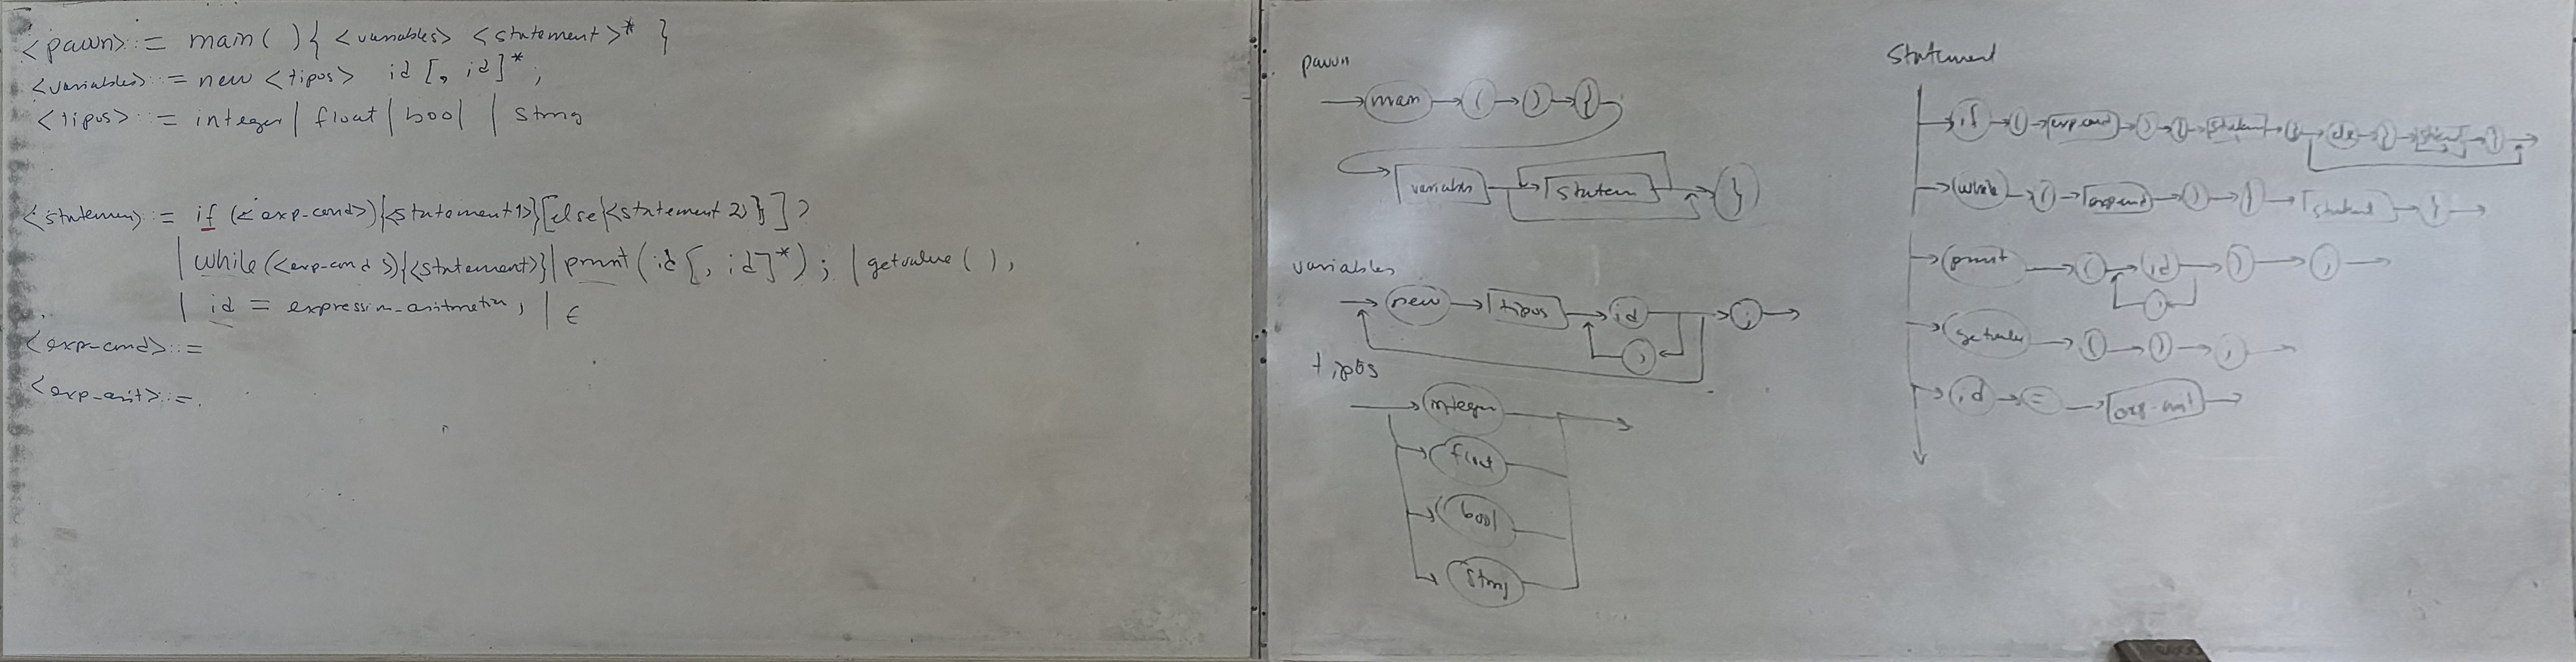 <pawn> ::= main( ){ <variables> <statement>* }
<variables> ::= new <tipos> id [, id]* ;
<tipos> ::= integer | float | bool | string
<statemen> ::= if (<exp-cond>){<statement1>}[else{<statement 2>}]?
| while(<exp-cond>){<statement>}| print(id[, id]*); | getvalue( );
| id = expression-aritmetica; | ϵ
<exp-cond> ::=
<exp-arit> ::=
pawn
main ( ) {
variables statem }
variables
new tipos id ;
,
tipos
integer
float
bool
string
Statement
if ( exp.cond ) { statem } else { statem }
while ( exp cond ) { statem }
print ( id ) ;
,
getvalue ( ) ;
id = exp-arit